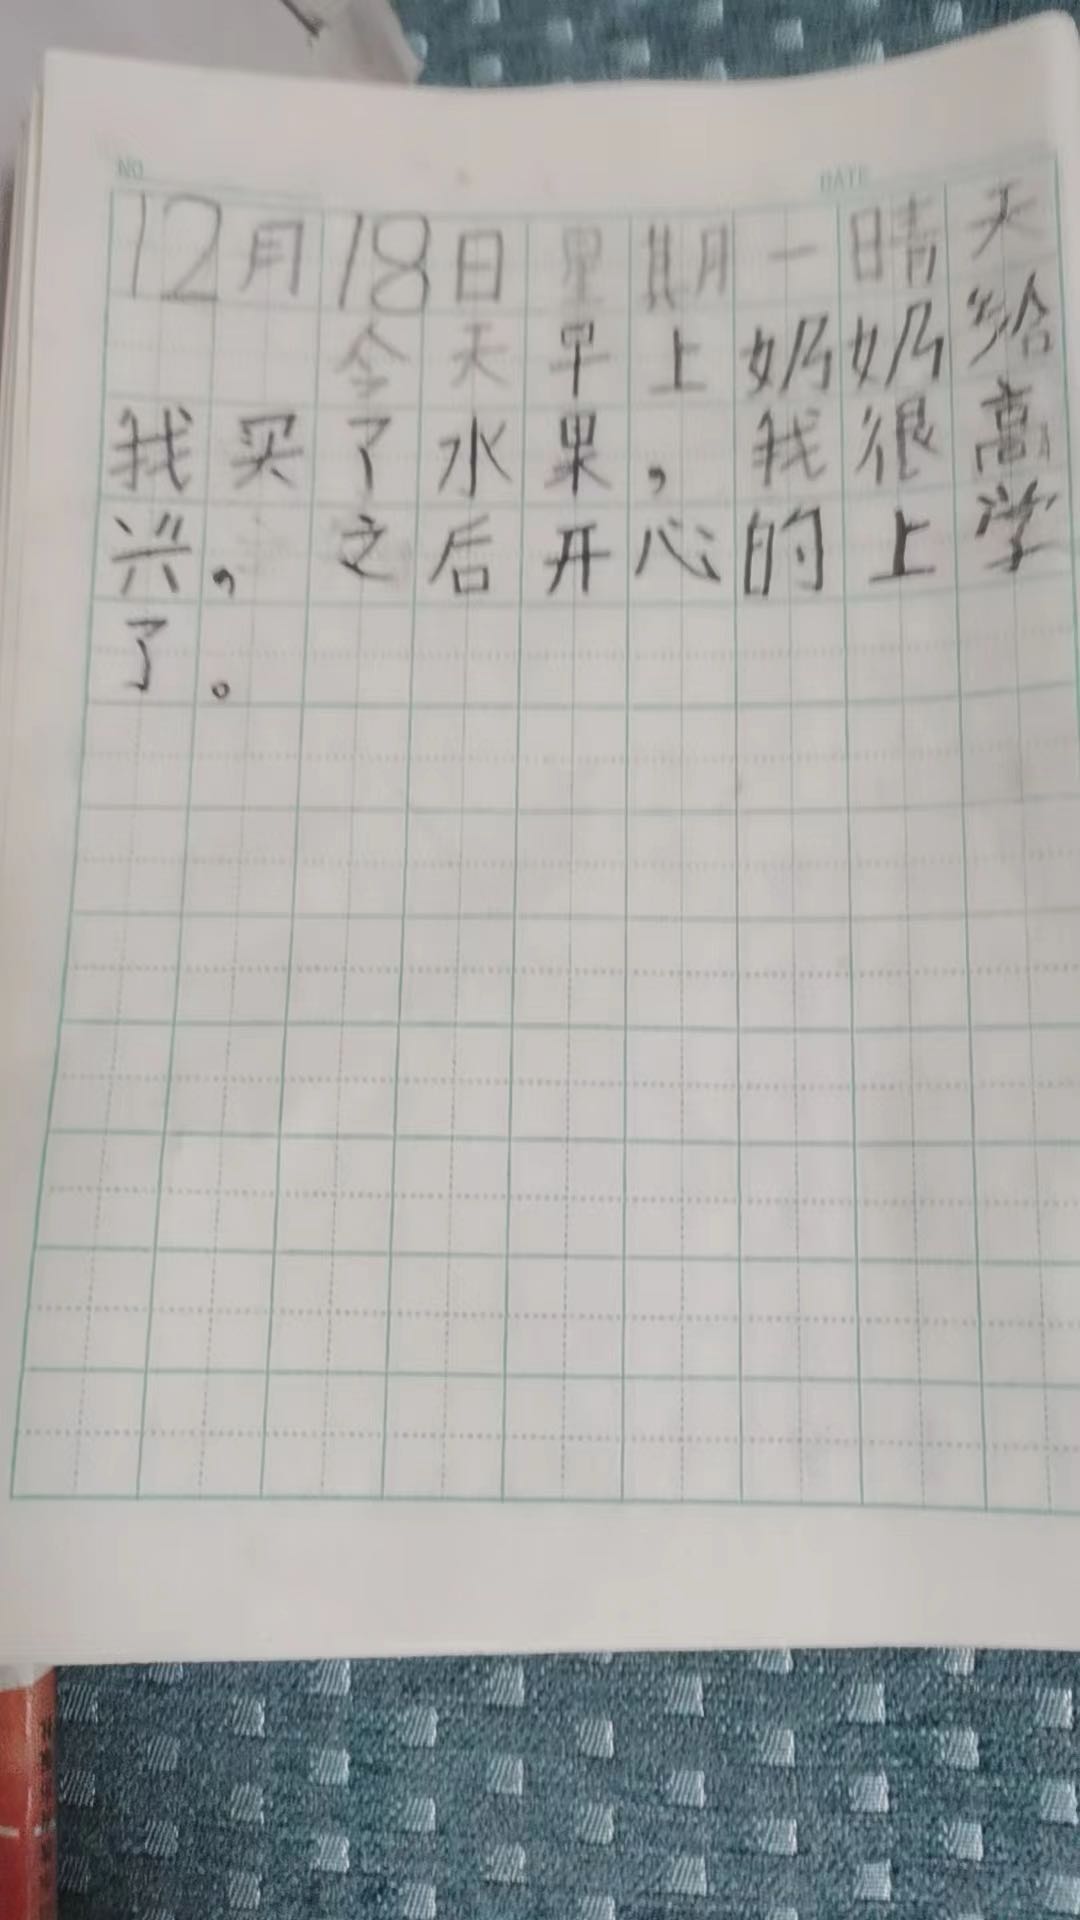 NO
DATE
12月18日星期一晴天
今天早上奶奶给
我买了水果，我很高
兴，之后开心的上学
了。